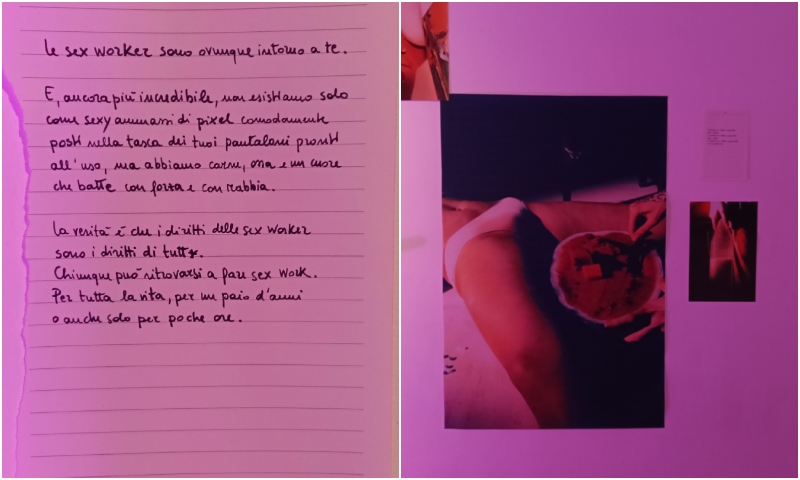 le sex worker sono ovunque intorno a te.
E, ancora più incredibile, non esistiamo solo
come sexy ammassi di pixel comodamente
posti nella tasca dei tuoi pantaloni pronti
all'uso, ma abbiamo carne, ossa e un cuore
che batte con forza e con rabbia.
La verità è che i diritti delle sex worker
sono i diritti di tutt*.
Chiunque può ritrovarsi a fare sex work.
Per tutta la vita, per un paio d'anni
o anche solo per poche ore.